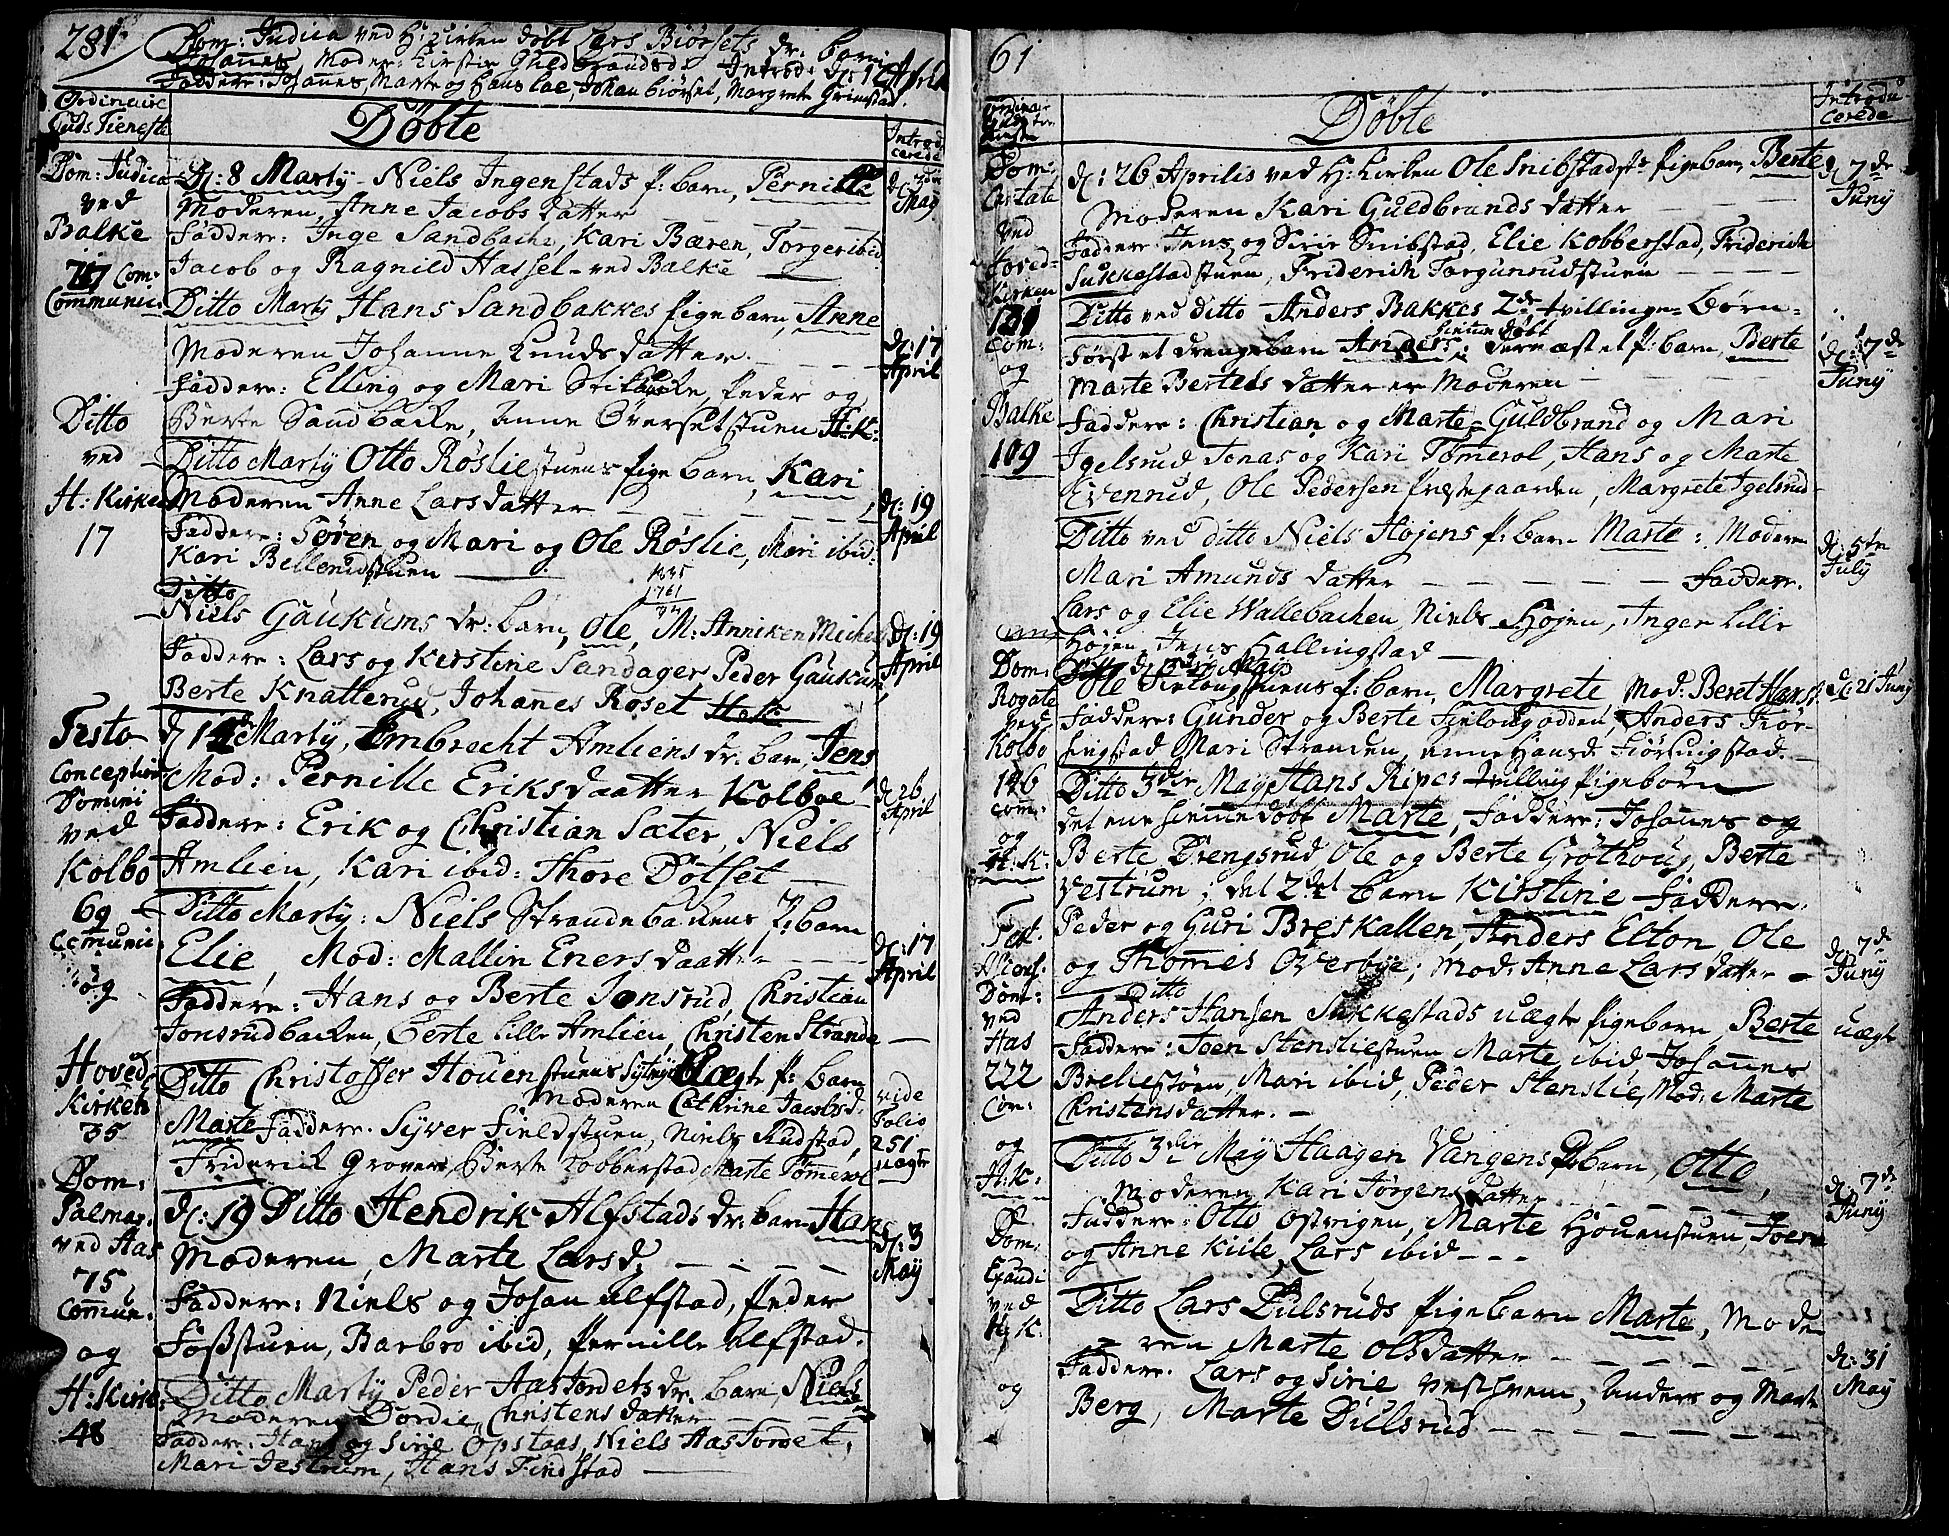 281
Dom: Judica ved H: Kirken döbt Lars Biörsets dr: barn
Johannes, Moder: Kirstie Guldbrandsd: Introd: d: 17 April
Faddere: Johannes, Marte og Hans Loe, Johan Biörset, Margrete Grimstad.
Ordinaire
Guds Tieneste
Döbte
Introdu
cerede
Dom: Judica
ved
Balke
717 Com:
Communic:
D: 8 Marty Niels Ingenstads p: barn, Pernille
Moderen, Anne Jacobs datter
d: 3die
May
Faddere: Inge Sandbache, Kari Bæren, Torger ibid:
Jacob og Ragnild Hassel - ved Balke
Ditto Marty Hans Sandbakkes Pigebarn, Anne
Moderen Johanne Knudsdatter.
d: 17
April
Faddere: Elling og Mari Stikbacke, Peder og
Berte Sandbacke, Anne Överset stuen H:K:
Ditto
ved
H: Kirken
17
Ditto Marty Otto Röslie stuens Pige barn, Kari
Moderen Anne Larsdatter
d: 19
April
Faddere: Sören og Mari og Ole Röslie, Mari ibid:
Kari Bellerudstuen
1835
1761
74
Ditto
Niels Gaukums dr: barn, Ole, M: Anniken Michels
d: 19
April
Faddere: Lars og Kirstine Sandager Peder Gaukum
Berte Knatterud, Johannes Roset
Festo
Conception
Domini
ved
Kolbo
69
Comunic:
og
d 12 Marty, Embrecht Amliens dr: barn, Jens
Mod: Pernille Eriksdaatter Kolboe
d: 26
April
Faddere: Erik og Christian Sæter, Niels
Amlien, Kari ibid: Thore Dötset
Ditto Marty: Niels Strandebackens P: barn
Elie, Mod: Mallin Enersdaatter
d: 17
April
Faddere: Hans og Berte Jonsrud, Christian
Jonsrudbacken, Berte Lille Amlien, Christen Strande
Hoved
Kirken
35
Ditto Christoffer Houenstuens uægte p: barn
Moderen Cathrine Jacobsd:
Marte Faddere: Syver Fieldstuen, Niels Rudstad,
Friderich Grover, Berte Kobberstad, Marte Tömerol
vide
Folio
251
uægte
Dom:
Palmar:
ved Aas
75
Comun:
og
H: Kirk:
48
d: 19 Ditto Hendrik Alfstads dr: barn Hans
Moderen, Marte Larsd:
d: 3
May
Faddere: Niels og Johan Alfstad, Peder
Fosstuen, Barbro ibid, Pernille Alfstad.
Ditto Marty Peder Aastordets dr: barn, Niels
Moderen Dordie, Christens datter
Faddere: Hans og Sirie Opsaas, Niels Aastordet,
Mari Jestrum, Hans Findstad
61
Döbte
Introdu
cerede
Dom:
Cantate
ved
Hoved-
Kirken
121
Com:
og
Balke
109
d: 26 Aprilis ved H: Kirken Ole Snibstads Pigebarn, Berte
Moderen Kari Guldbrands datter
d: 7de
Juny
Faddere: Jens og Sirie Snibstad, Elie Kobberstad, Friderich
Suckestadstuen, Friderich Torgunrudstuen
Ditto ved ditto Anders Bakkes 2de tvillinge Börn
Först et drengebarn Anders hiemme döbt; dernæst et p: barn, Berte
Marte Bertels datter er Moderen
d: 7de
Juny
Faddere: Christian og Marte Guldbrand og Mari
Igelsrud Jonas og Kari Tömerol, Hans og Marte
Evenrud, Ole Pedersen Præstegaarden, Margrete Igelsrud
Ditto ved ditto Niels Höjens p: barn Marte: Moderen
Mari Amunds datter Faddere.
d: 5te
July
Lars og Elie Wallebacken, Niels Höjen, Inger Lille
Höjen, Jens Hallingstad
Dom:
Rogate
ved
Kolbo
106
Com:
og
H: K:
Ole p: barn, Margrete Mod: Beret Hansd:
d: 21 Juny
Faddere: Gunder og Berte, Anders
Mari Stranden, Anne Hansd:
Ditto 3die May Hans Ripes tvilling Pigebörn
det ene hiemme döbt Marte, Faddere: Johannes og
Berte Drengsrud, Ole og Berte Gröthoug, Berte
Vestrum; det 2det barn Kirstine Faddere.
Peder og Guri Breskallen, Anders Elton, Ole
og Thomes Overbye; Mod: Anne Lars datter
d: 7de
Juny
Fest.
Ascens:
Dom:
ved
Aas
222
Com:
og
H: K:
Ditto
Anders Hansen Suckestads uægte Pigebarn, Berte
uægte
Faddere: Joen Stensliestuen Marte ibid, Johannes
Mari ibid, Peder Stenslie, Mod: Marte
Christens datter.
Ditto 3die May Haagen Vangens P: barn, Otto,
Moderen Kari Jörgens datter
d: 7de
Juny
Faddere: Otto Ostvigen, Marte Houenstuen, Joen
og Anne Kiile, Lars ibid
Dom:
Exaudi
ved
H: K:
og
Ditto Lars Dulsruds Pigebarn Marte, Mode
ren Marte Olsdatter
d: 31
May
Faddere: Lars og Sirie, Anders og Marte
Berg, Marte Dulsrud